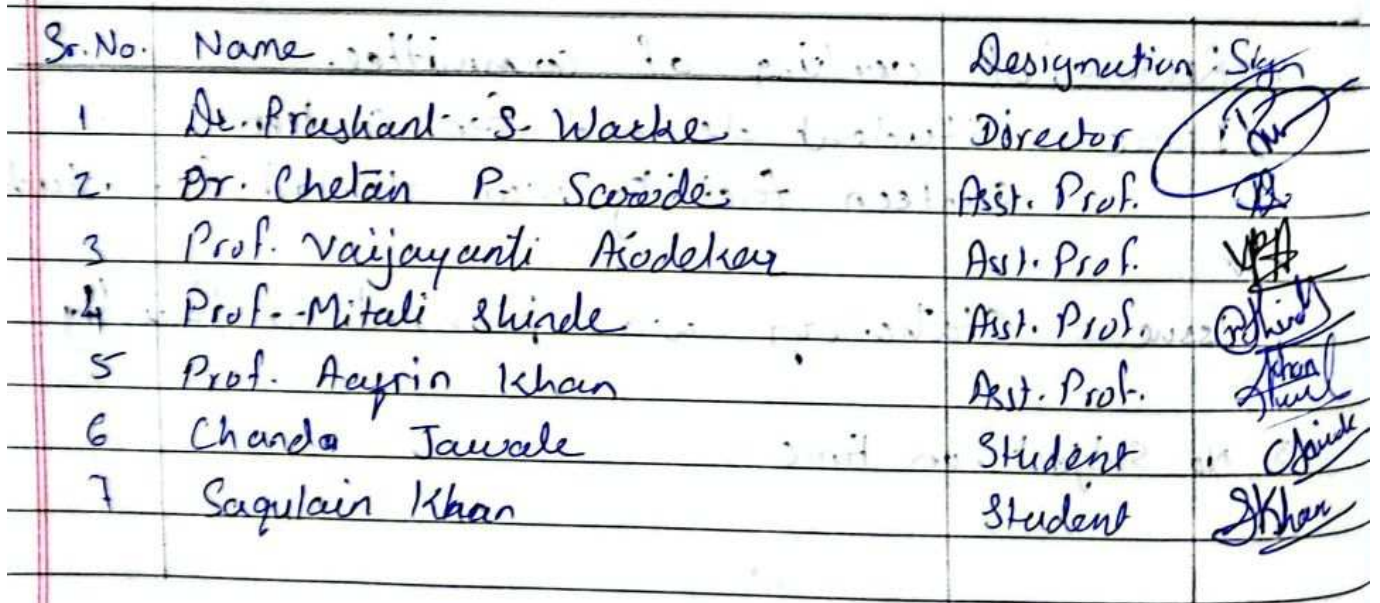 Sr. No. Name Designation Sign
1 Dr. Prashant S. Warke Director
2. Dr. Chetan P. Sarode Asst. Prof.
3 Prof. Vaijayanti Asodekar Asst. Prof. VPA
4 Prof. Mitali Shinde Asst. Prof. Shinde
5 Prof. Aafrin Khan Asst. Prof. Khan
6 Chanda Jawale Student
7 Saqulain Khan Student SKhan